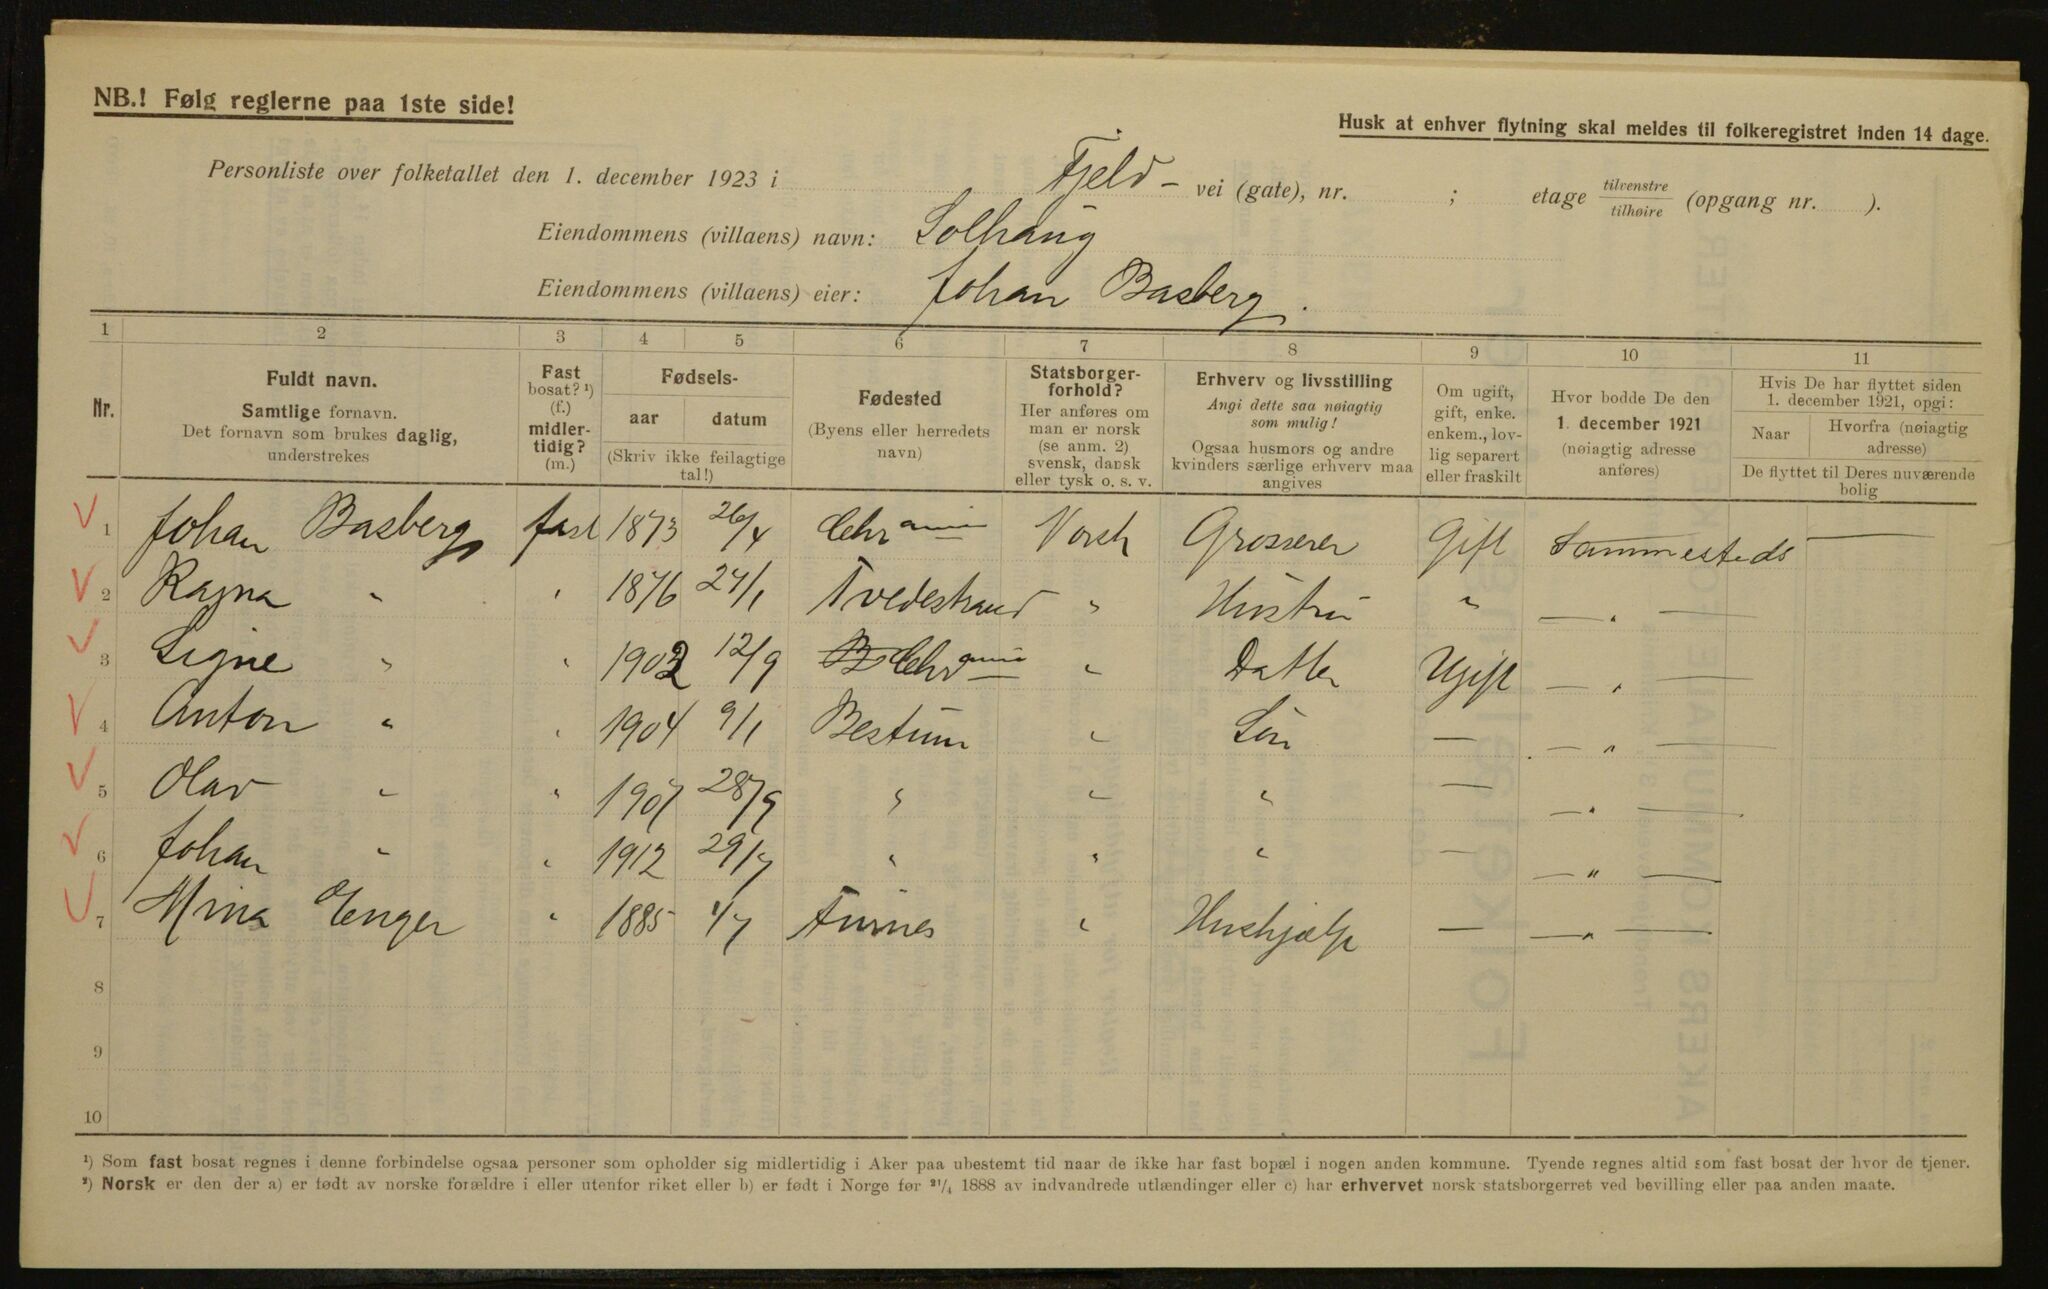 NB.! Følg reglerne paa 1ste side!
Husk at enhver flytning skal meldes til folkeregistret inden 14 dage.
Personliste over folketallet den 1. december 1923 i Fjeld- vei (gate), nr. ; etage tilvenstre/tilhøire (opgang nr. ).
Eiendommens (villaens) navn: Solhaug
Eiendommens (villaens) eier: Johan Basberg.
1 2 3 4 5 6 7 8 9 10 11
Nr.
Fuldt navn.
Samtlige fornavn.
Det fornavn som brukes daglig, understrekes
Fast bosat? ¹) (f.) midlertidig? (m.)
Fødsels-
aar datum
(Skriv ikke feilagtige tal!)
Fødested
(Byens eller herredets navn)
Statsborgerforhold?
Her anføres om man er norsk (se anm. 2) svensk, dansk eller tysk o. s. v.
Erhverv og livsstilling
Angi dette saa nøiagtig som mulig!
Ogsaa husmors og andre kvinders særlige erhverv maa angives
Om ugift, gift, enke. enkem., lovlig separert eller fraskilt
Hvor bodde De den 1. december 1921 (nøiagtig adresse anføres)
Hvis De har flyttet siden 1. december 1921, opgi:
Naar Hvorfra (nøiagtig adresse)
De flyttet til Deres nuværende bolig
1 Johan Basberg fast 1873 26/4 Chrania Norsk Grosserer Gift Sammesteds —
2 Ragna " " 1876 27/1 Tvedestrand " Hustru " — " —
3 Signe " " 1902 12/9 Chrania " Datter Ugift — " —
4 Anton " " 1904 9/1 Bestum " Søn — — " —
5 Olav " " 1907 28/9 " " " — — " —
6 Johan " " 1912 29/7 " " " — — " —
7 Mina Enger " 1885 1/7 Furnes " Hushjælp — — " —
8
9
10
¹) Som fast bosat regnes i denne forbindelse ogsaa personer som opholder sig midlertidig i Aker paa ubestemt tid naar de ikke har fast bopæl i nogen anden kommune. Tyende regnes altid som fast bosat der hvor de tjener.
²) Norsk er den der a) er født av norske forældre i eller utenfor riket eller b) er født i Norge før 21/4 1888 av indvandrede utlændinger eller c) har erhvervet norsk statsborgerret ved bevilling eller paa anden maate.